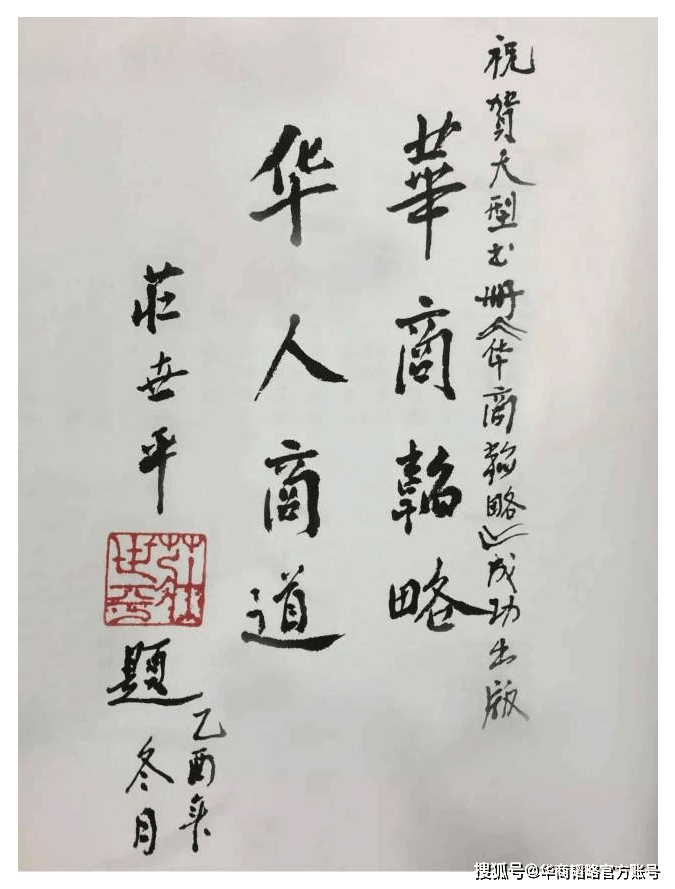 祝賀大型书册《华商韜略》成功出版
華商韜略
华人商道
莊世平
莊世平
題
乙酉年
冬月
搜狐号@华商韬略官方账号